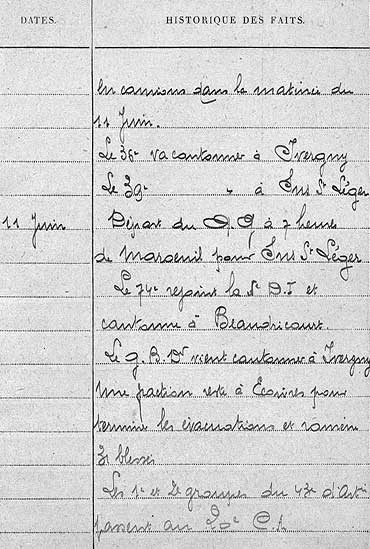 DATES.
HISTORIQUE DES FAITS.
en camions dans la matinée du
11 Juin.
Le 36e va cantonner à Ivergny
Le 39e " à Sus St Léger
11 Juin
Départ du Q.G à 7 heures
de Maroeuil pour Sus St Léger
Le 74e rejoint la 5e D.I et
cantonne à Beaudricourt.
Le G.B.D vient cantonner à Ivergny
Une fraction reste à Ecoivres pour
terminer les évacuations et ramène
31 blessés
Les 1e et 2e groupes du 43e d'Art
passent au 20e C.A